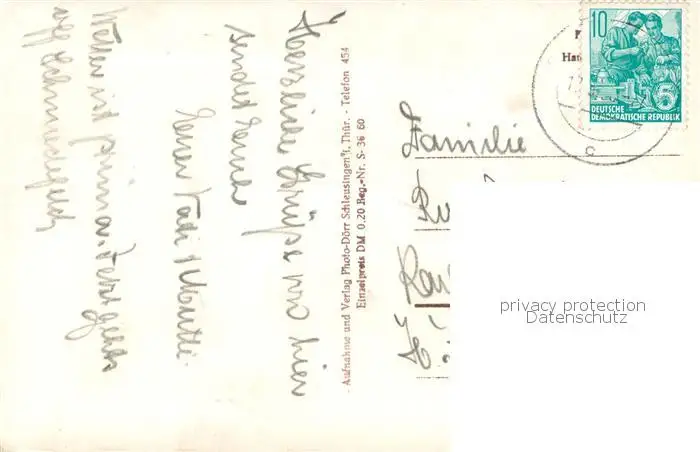 Herzliche Grüße von hier
sendet Euch
Euer Vati & Mutti.
Wetter ist prima. Jetzt gehts
auf Schmiedefeld
- Aufnahme und Verlag Photo-Dörr Schleusingen i. Thür. - Telefon 454
Einzelpreis DM 0,20 Reg.-Nr. S- 36 60
10
DEUTSCHE
DEMOKRATISCHE REPUBLIK
5
c
Familie
privacy protection
Datenschutz